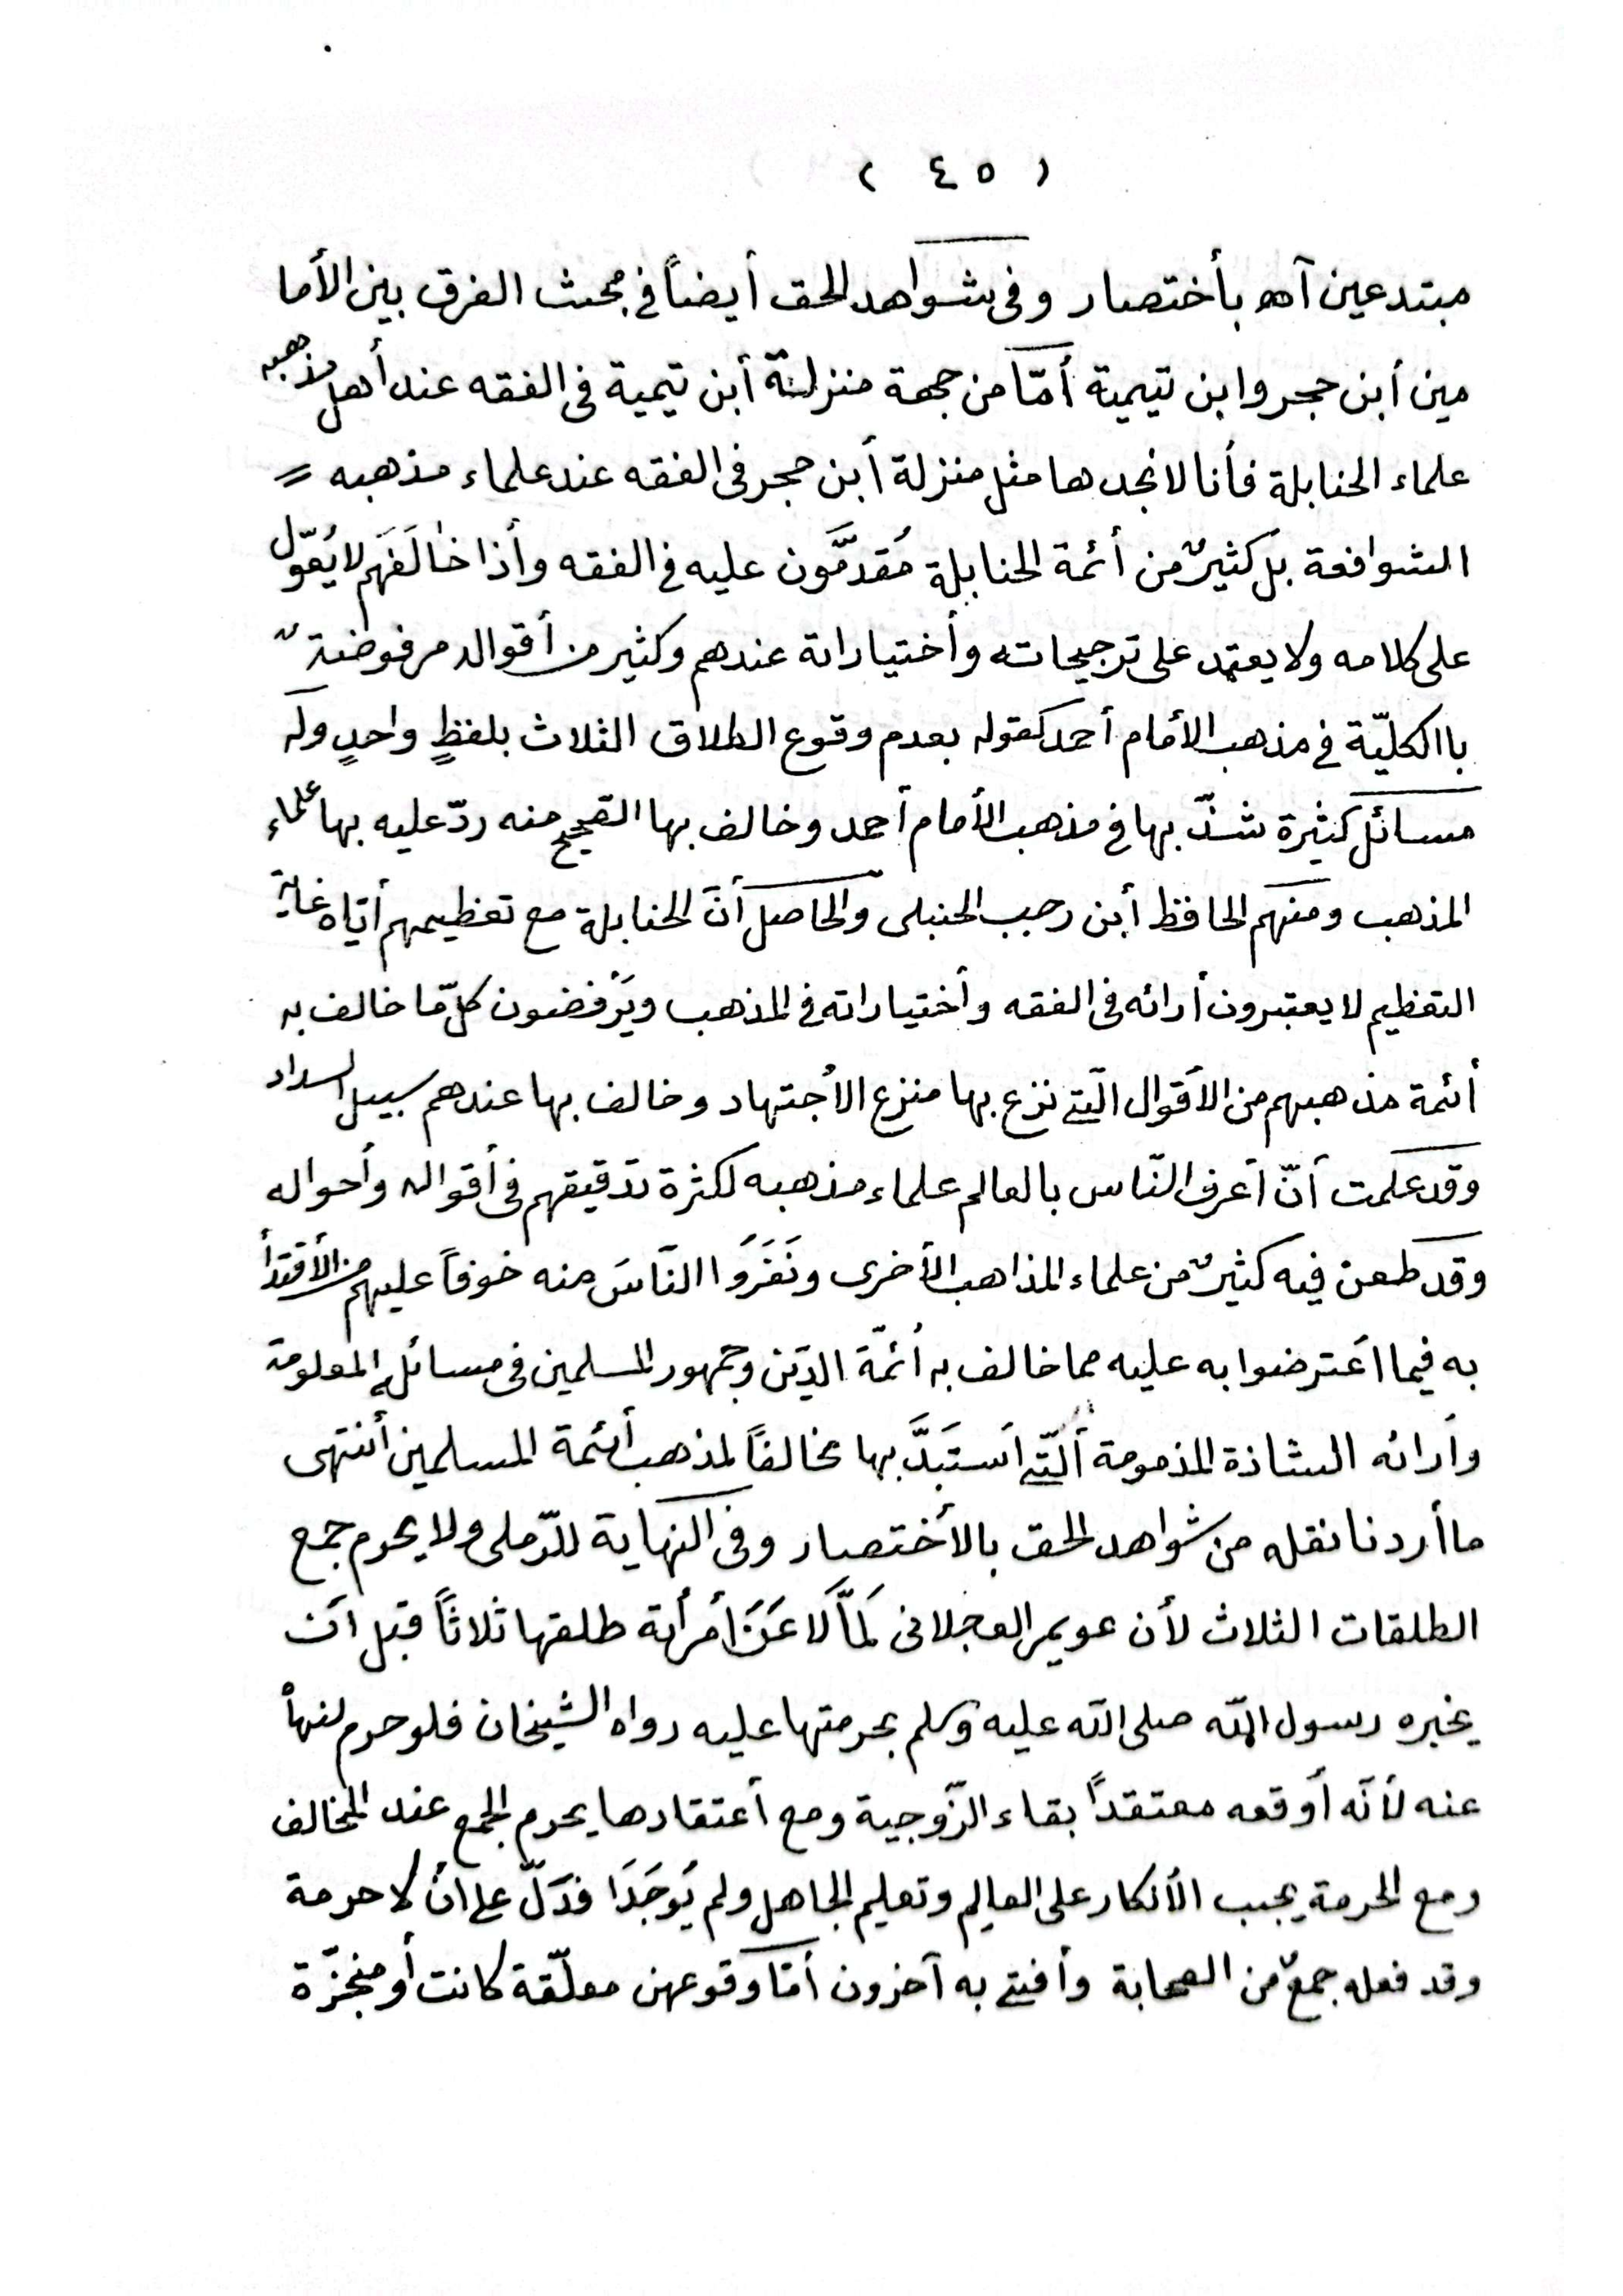 ( ٤٥ )
مبتدعين آه بأختصار وفى شواهد الحق أيضاً في مبحث الفرق بين الأما
مين أبن حجر وابن تيمية أمّا من جهة منزلة أبن تيمية فى الفقه عند أهل مذهبه
علماء الحنابلة فأنا لا نجدها مثل منزلة أبن حجر فى الفقه عند علماء مذهبه =
الشوافعة بل كثيرٌ من أئمة الحنابلة مُقدَّمون عليه في الفقه وأذا خالَفَهم لا يُعّول
على كلامه ولا يعتمد على ترجيحاته وأختياراتة عندهم وكثير من أقواله مرفوضةٌ
باالكليّة في مذهب الأمام أحمد كقوله بعدم وقوع الطلاق الثلاث بلفظٍ واحدٍ وله
مسائل كثيرة شذّ بها في مذهب الأمام أحمد وخالف بها الصّحيح منه ردّ عليه بها علماء
المذهب ومنهم الحافظ أبن رجب الحنبلى والحاصل أنّ الحنابلة مع تعظيمهم أيّاه غاية
التعظيم لا يعتبرون أرائه فى الفقه وأختياراته في المذهب ويَرْفضون كلّ ما خالف به
أئمة مذهبهم من الأقوال الّتي نزع بها منزع الأجتهاد وخالف بها عندهم سبيل السداد
وقد علمت أنّ أعرف النّاس بالعالم علماء مذهبه لكثرة تدقيقهم فى أقواله وأحواله
وقد طعن فيه كثيرٌ من علماء المذاهب الأخرى ونَفَرَوا النّاسَ منه خوفاً عليهم من الأقتدأ
به فيما اعترضوا به عليه مما خالف به أئمّة الدّين وجمهور المسلمين فى مسائله المعلومة
وأرائه الشاذة المذمومة ألّتي استَبَدَّ بها مخالفاً لمذهب أئمة المسلمين أنتهى
ما أردنا نقله من شواهد الحق بالأختصار وفى النهاية للرّملى ولا يحرم جمع
الطلقات الثلاث لأن عويمر العجلانى لَمَّا لَاعَنَ أمرأتة طلقها ثلاثاً قبل أن
يخبره رسول الله صلى الله عليه وسلم بحرمتها عليه رواه الشيخان فلو حرم لنهاْ
عنه لأنّه أوقعه معتقداً بقاء الزّوجية ومع أعتقادها يحرم الجمع عند المخالف
ومع الحرمة يجب الأنكار على العالم وتعليم الجاهل ولم يُوجَدَا فدَلّ على أن لا حرمة
وقد فعله جمعٌ من الصحابة وأفتي به آخرون أمّا وقوعهن معلّقة كانت أو منجزّة